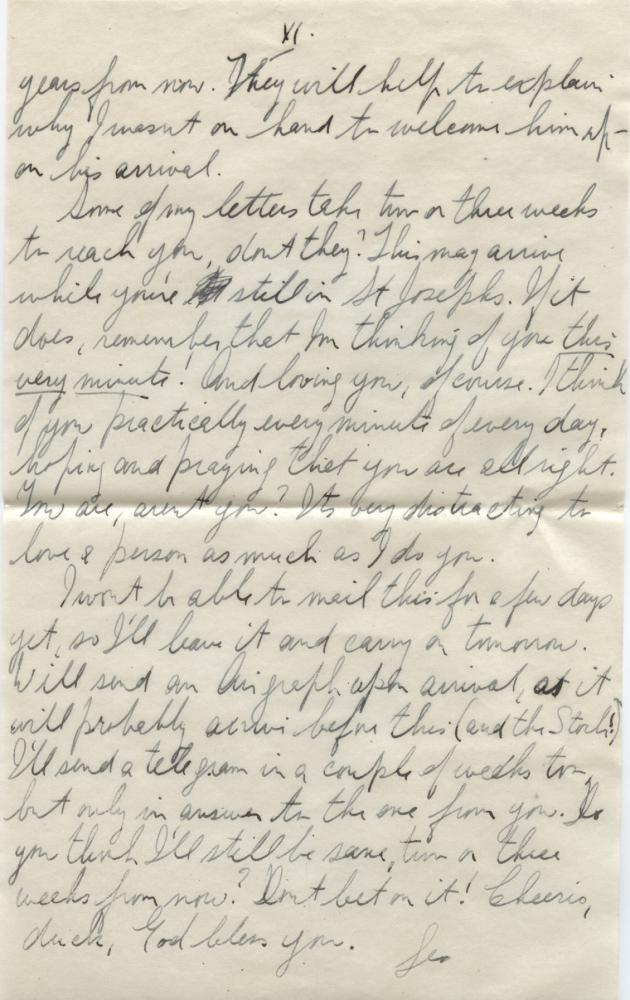 XI.
years from now. They will help to explain
why I wasn't on hand to welcome him up-
on his arrival.
Some of my letters take two or three weeks
to reach you, don't they? This may arrive
while you're still in St Josephs. If it
does, remember that I'm thinking of you this
very minute! And loving you, of course. I think
of you practically every minute of every day,
hoping and praying that you are all right.
You are, aren't you? It's very distracting to
love a person as much as I do you.
I won't be able to mail this for a few days
yet, so I'll leave it and carry on tomorrow.
Will send an Airgraph upon arrival, as it
will probably arrive before this (and the Stork!)
I'll send a telegram in a couple of weeks too,
but only in answer to the one from you. Do
you think I'll still be sane, two or three
weeks from now? Don't bet on it! Cheerio,
duck, God bless you.
Leo